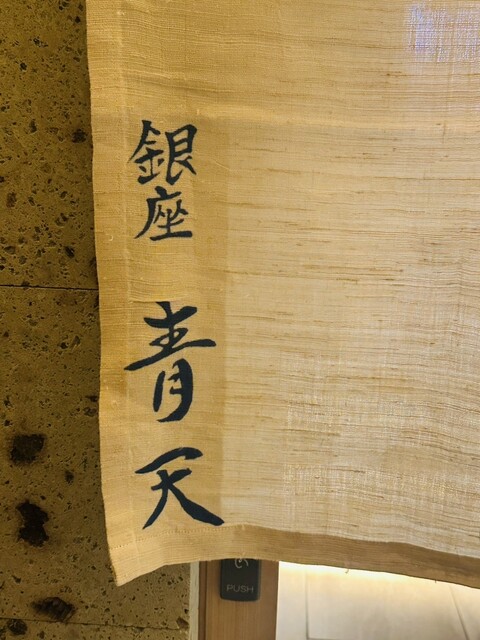 銀座 青天
PUSH